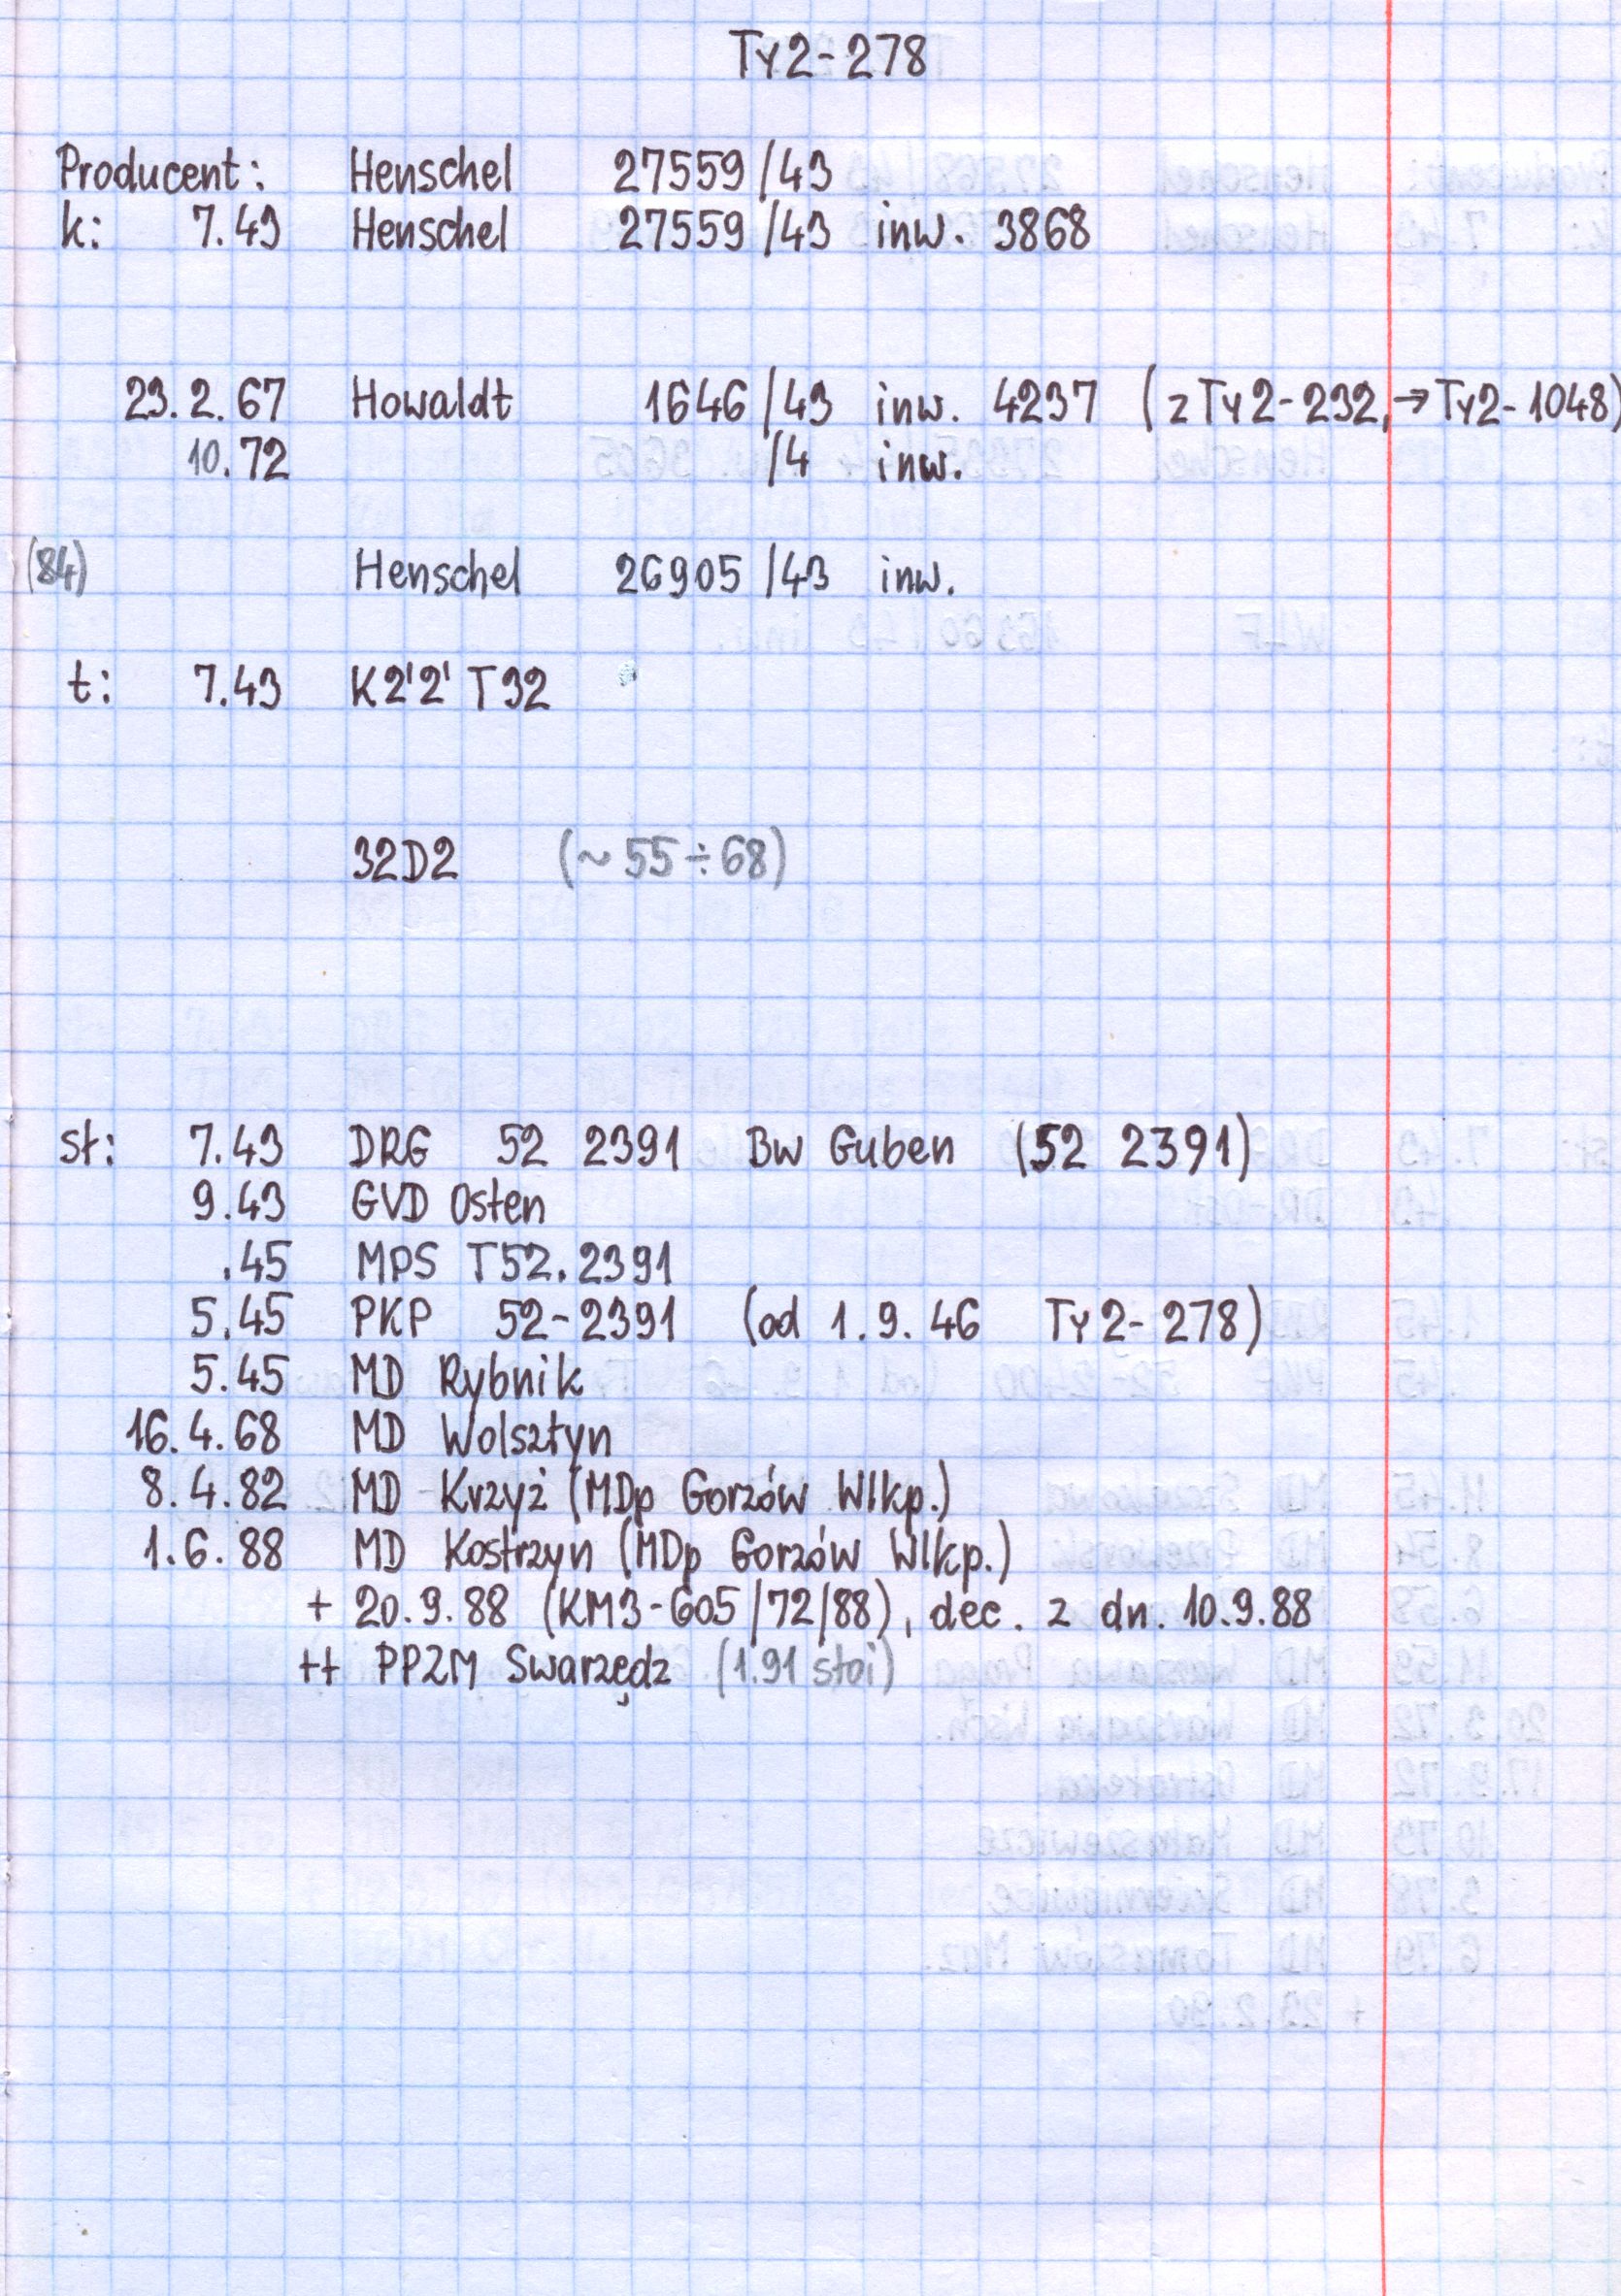 Ty2-278
Producent: Henschel 27559/43
k: 7.43 Henschel 27559/43 inw. 3868
23.2.67 Howaldt 1646/43 inw. 4237 (z Ty2-232, → Ty2-1048)
10.72 /4 inw.
(84) Henschel 26905/43 inw.
t: 7.43 K2'2' T32
32D2 (~55÷68)
st: 7.43 DRG 52 2391 Bw Guben (52 2391)
9.43 GVD Osten
.45 MPS T52.2391
5.45 PKP 52-2391 (od 1.9.46 Ty2-278)
5.45 MD Rybnik
16.4.68 MD Wolsztyn
8.4.82 MD Krzyż (MDp Gorzów Wlkp.)
1.6.88 MD Kostrzyn (MDp Gorzów Wlkp.)
+ 20.9.88 (KM3-605/72/88), dec. z dn. 10.9.88
++ PPZM Swarzędz (1.91 stoi)